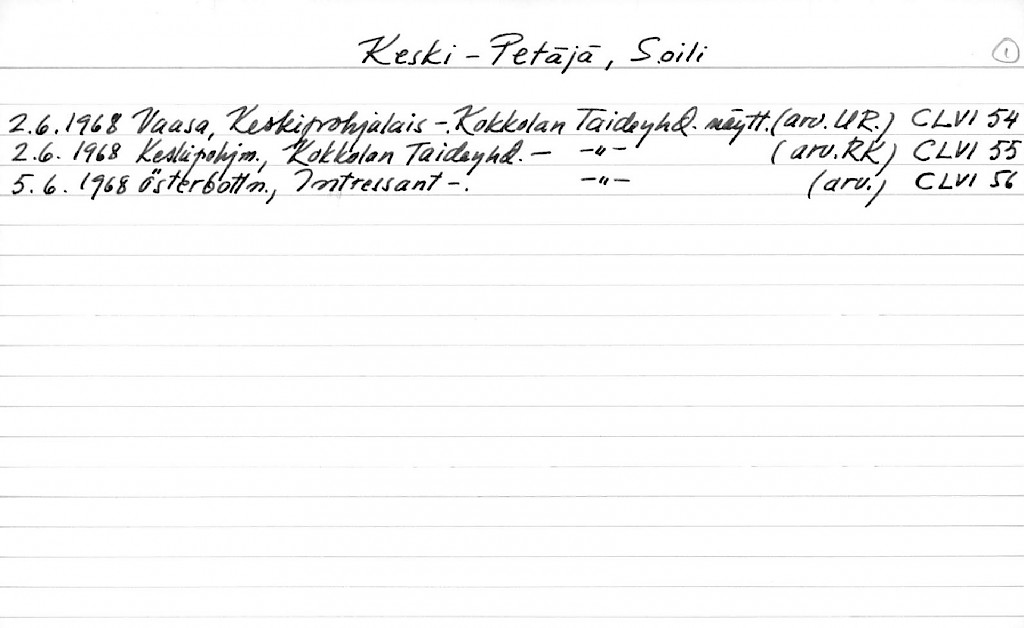 Keski-Petäjä, Soili 1
2.6.1968 Vaasa, Keskipohjalais-. Kokkolan Taideyhd. näytt. (arv. UR.) CLVI 54
2.6.1968 Keskipohjm., Kokkolan Taideyhd. - -"- (arv. RK) CLVI 55
5.6.1968 Österbottn., Intressant -. -"- (arv.) CLVI 56